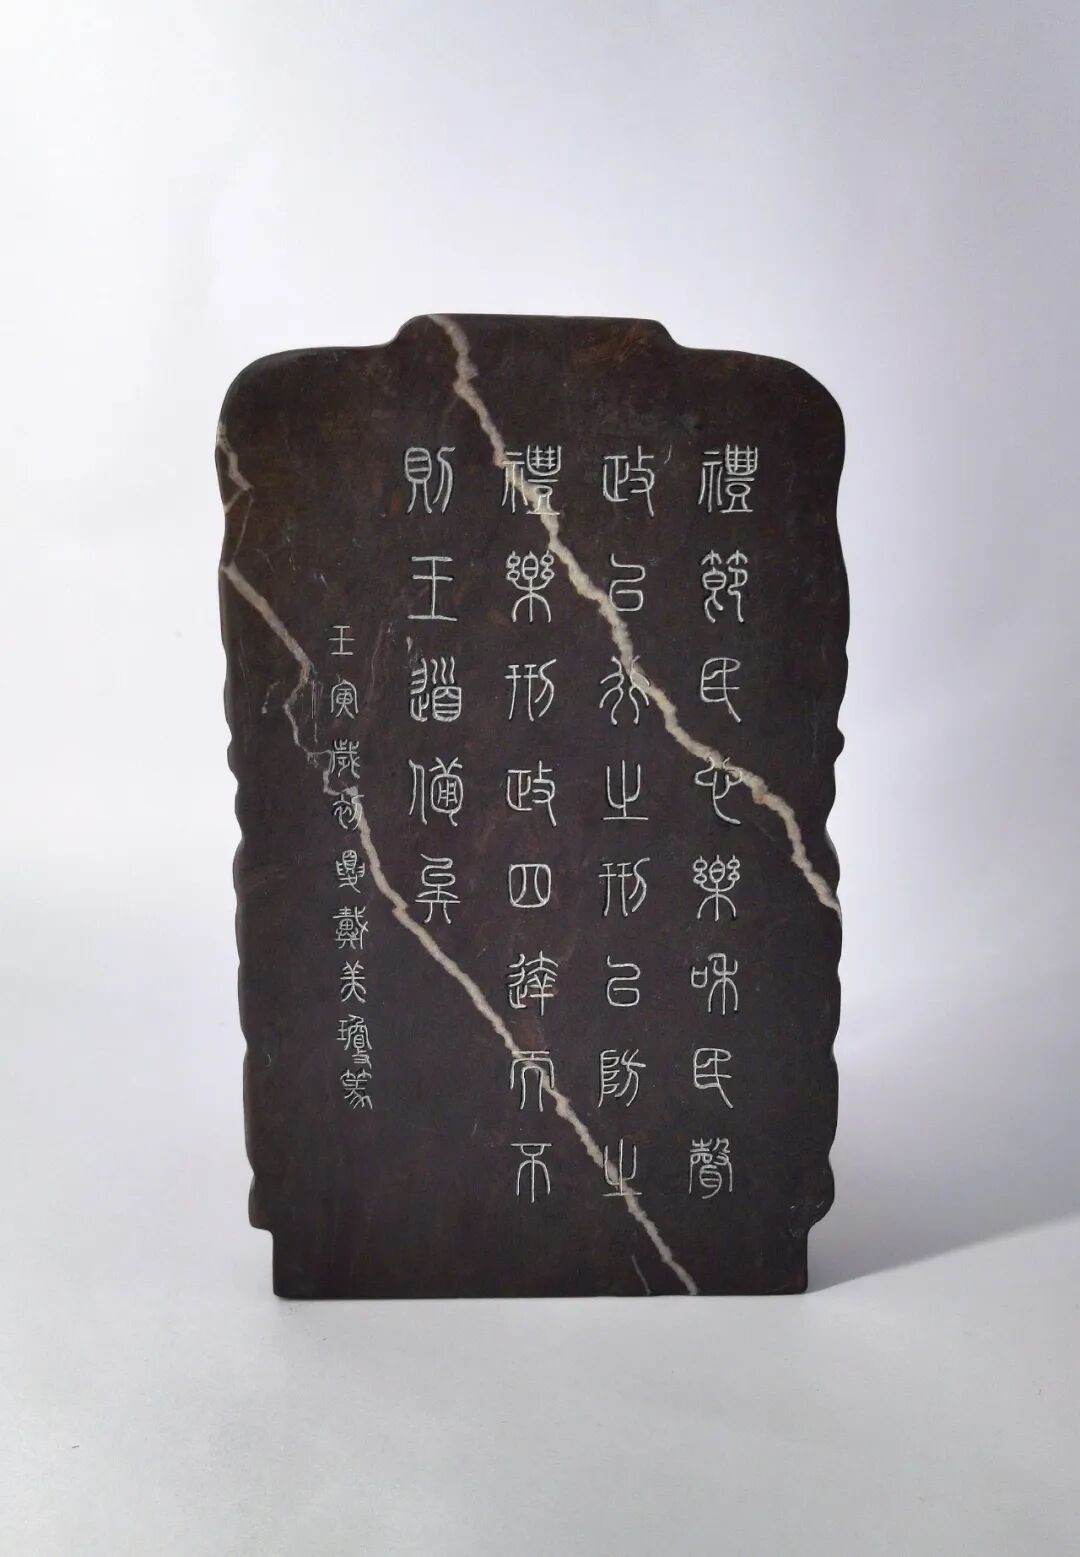 禮節民心樂和民聲
政以行之刑以防之
禮樂刑政四達而不
則王道備矣
壬寅歲初夏戴美瓊篆